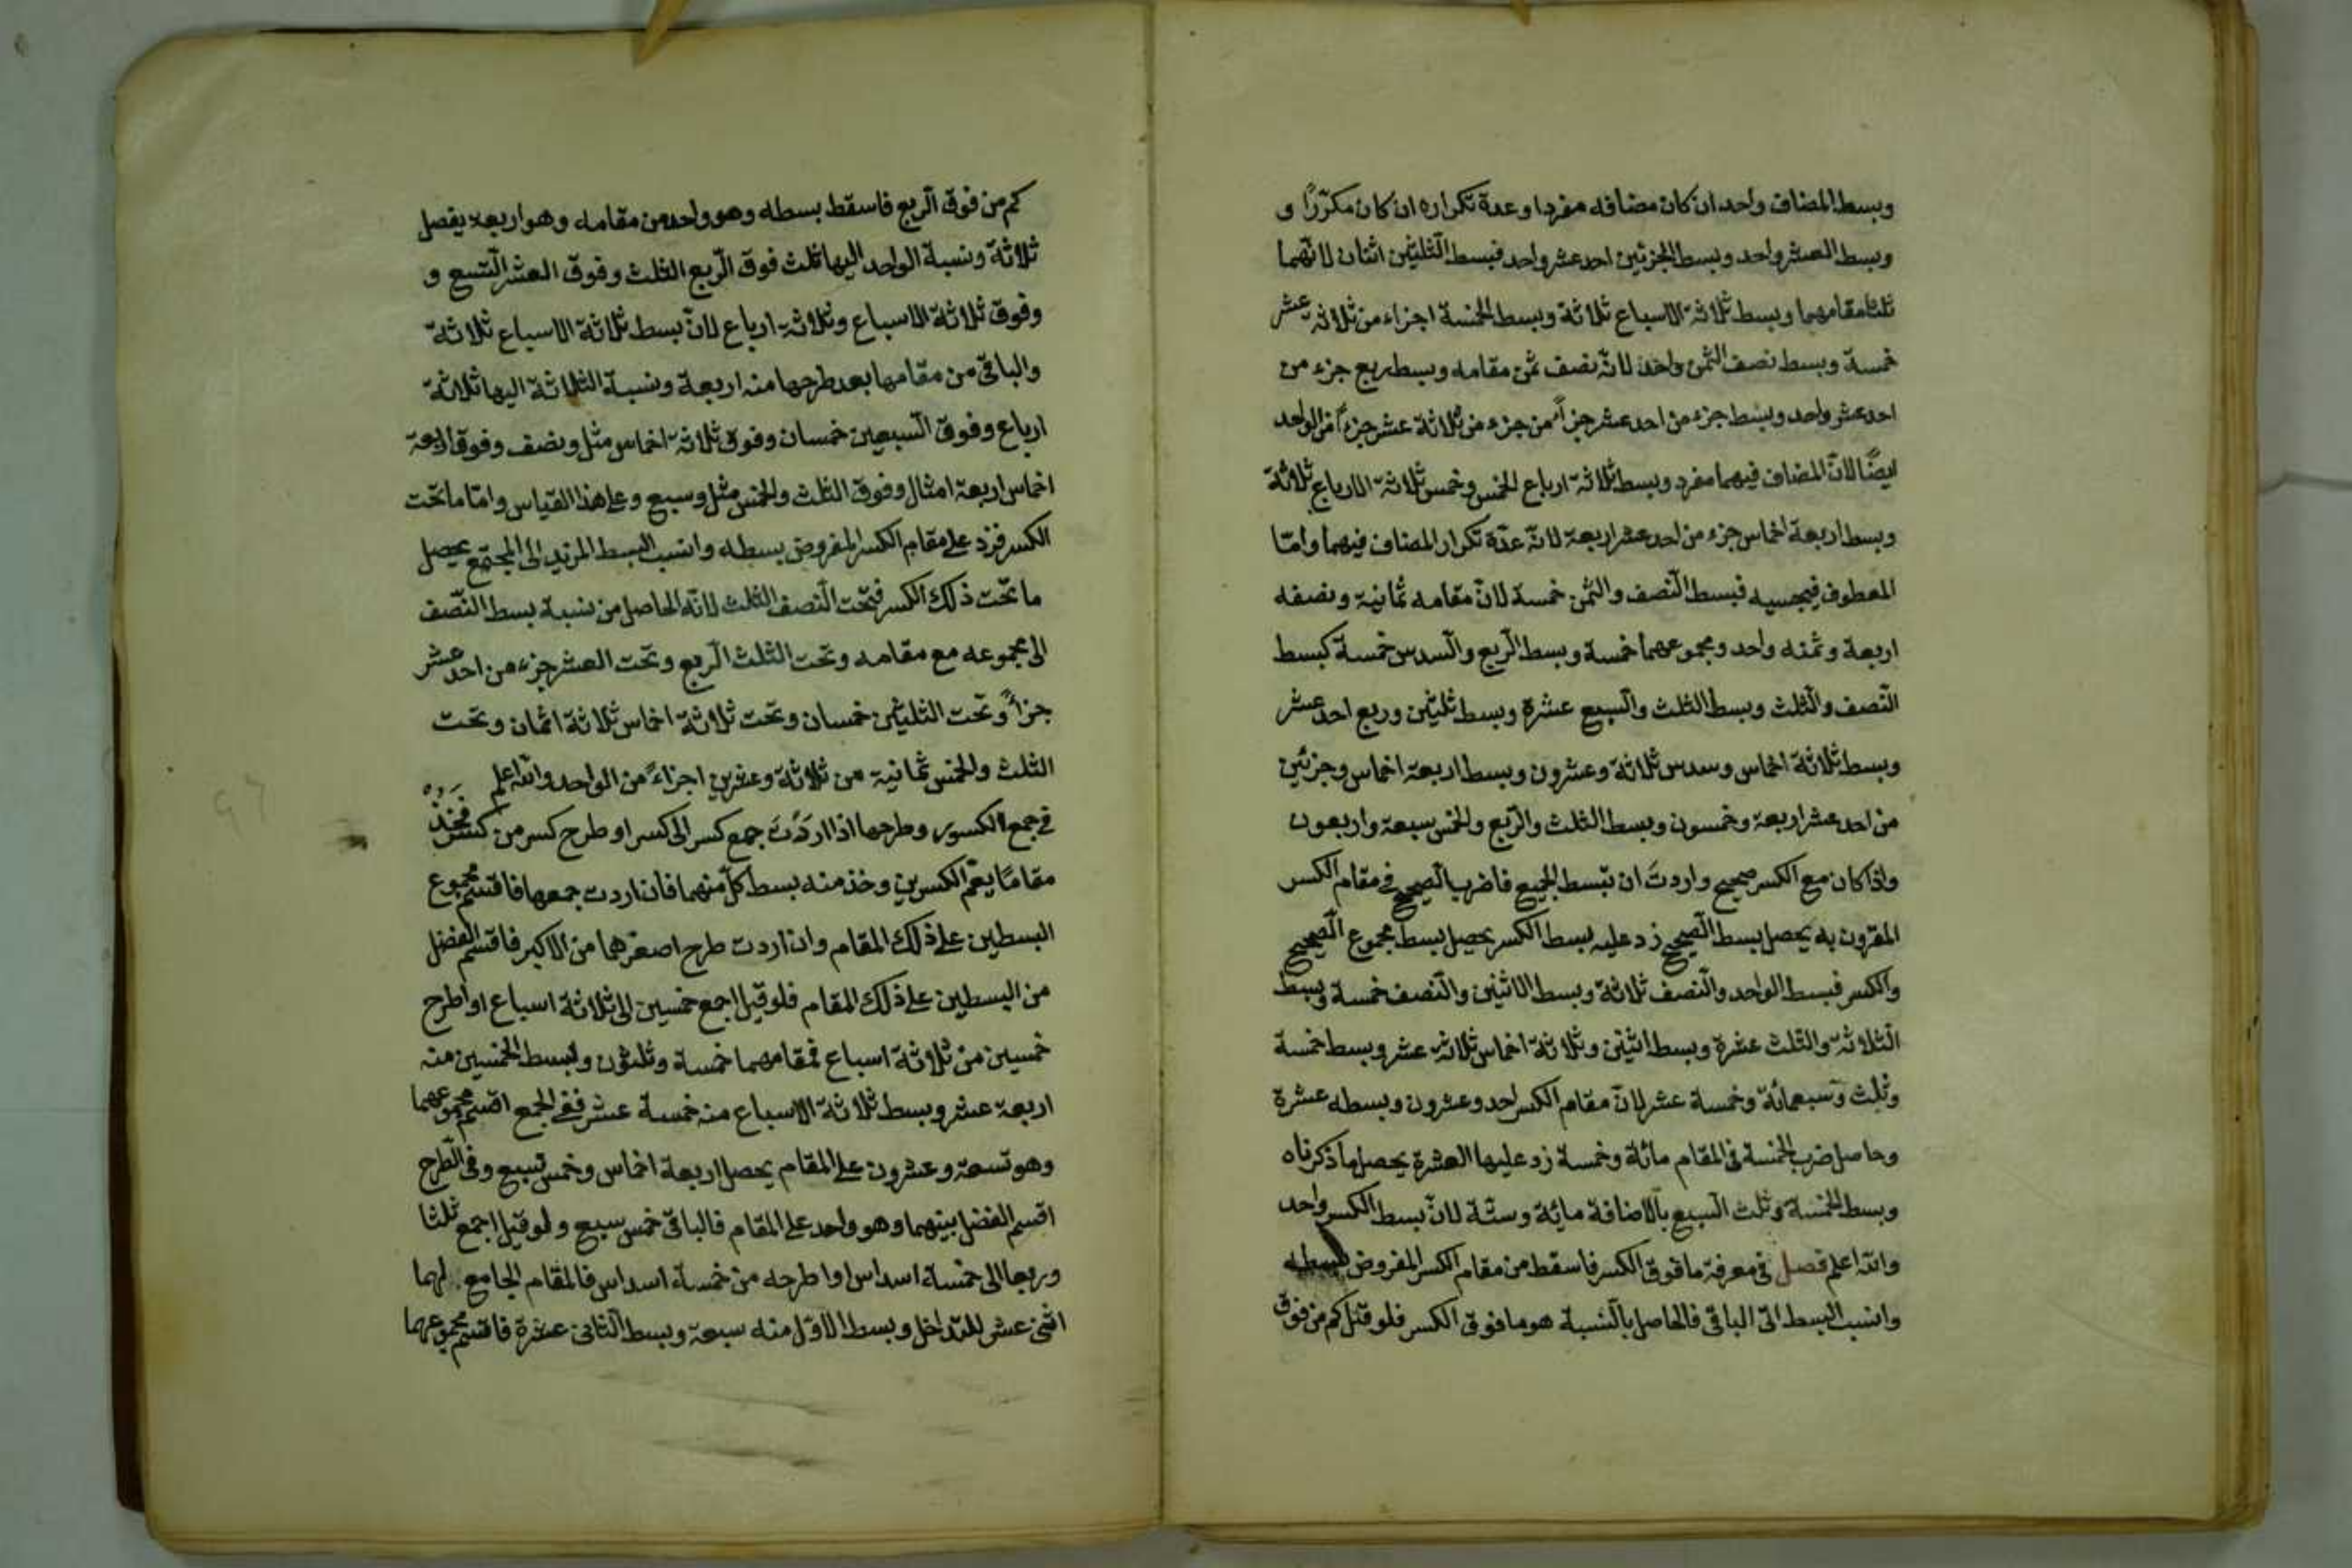 وبسط المضاف واحد ان كان مضافه مفردا وعدة تكراره ان كان مكرّرًا و
وبسط العشر واحد وبسط الجزئين احد عشر واحد فبسط الثلثين اثنان لانّهما
ثلثا مقامهما وبسط ثلاثة الاسباع ثلاثة وبسط الخمسة اجزاء من ثلاثة عشر
خمسة وبسط نصف الثمن واحد لانّه نصف ثمن مقامه وبسط ربع جزء من
احد عشر واحد وبسط جزء من احد عشر جزأً من جزء من ثلاثة عشر جزءاً من الواحد
ايضًا لانّ المضاف فيهما مفرد وبسط ثلاثة ارباع الخمس وخمس ثلاثة الارباع ثلاثة
وبسط اربعة اخماس جزء من احد عشر اربعة لانّه عدّة تكرار المضاف فيهما وامّا
المعطوف فبحسبه فبسط النّصف والثمن خمسة لانّ مقامه ثمانية ونصفه
اربعة وثمنه واحد ومجموعهما خمسة وبسط الرّبع والسّدس خمسة كبسط
النّصف والثّلث وبسط الثلث والسّبع عشرة وبسط ثلثين وربع احد عشر
وبسط ثلاثة اخماس وسدس ثلاثة وعشرون وبسط اربعة اخماس وجزئين
من احد عشر اربعة وخمسون وبسط الثلث والرّبع والخمس سبعة واربعون
واذا كان مع الكسر صحيح واردتَ ان تبسط الجميع فاضرب الصّحيح في مقام الكسر
المقرون به يحصل بسط الصّحيح زد عليه بسط الكسر يحصل بسط مجموع الصّحيح
والكسر فبسط الواحد والنّصف ثلاثة وبسط الاثنين والنّصف خمسة وبسط
الثلاثة والثلث عشرة وبسط اثنين وثلاثة اخماس ثلاثة عشر وبسط خمسة
وثلث وسبع مائة وخمسة عشر لانّ مقام الكسر احد وعشرون وبسطه عشرة
وحاصل ضرب الخمسة في المقام مائة وخمسة زد عليها العشرة يحصل ما ذكرناه
وبسط الخمسة وثلث السّبع بالاضافة مائة وستّة لانّ بسط الكسر واحد
والله اعلم فصل في معرفة ما فوق الكسر فاسقط من مقام الكسر المفروض بسطه
وانسب البسط الى الباقي فالحاصل بالنّسبة هو ما فوق الكسر فلو قيل كم من فوق
كم من فوق الرّبع فاسقط بسطه وهو واحد من مقامه وهو اربعة يفضل
ثلاثة ونسبة الواحد اليها ثلث فوق الرّبع الثلث وفوق العشر التّسع و
وفوق ثلاثة الاسباع وثلاثة ارباع لانّ بسط ثلاثة الاسباع ثلاثة
والباقي من مقامها بعد طرحها منه اربعة ونسبة الثلاثة اليها ثلاثة
ارباع وفوق السّبعين خمسان وفوق ثلاثة اخماس مثل ونصف وفوق اربعة
اخماس اربعة امثال وفوق الثلث والخمس مثل وسبع وعلى هذا القياس وامّا ما تحت
الكسر فزد على مقام الكسر المفروض بسطه وانسب البسط المزيد الى المجتمع يحصل
ما تحت ذلك الكسر فتحت النّصف الثلث لانّه الحاصل من نسبة بسط النّصف
الى مجموعه مع مقامه وتحت الثلث الرّبع وتحت العشر جزء من احد عشر
جزأً وتحت الثلثين خمسان وتحت ثلاثة اخماس ثلاثة اثمان وتحت
الثلث والخمس ثمانية من ثلاثة وعشرين اجزاءً من الواحد والله اعلم
في جمع الكسور وطرحها اذا اردت جمع كسر الى كسر او طرح كسر من كسر فخذ
مقامًا يعمّ الكسرين وخذ منه بسط كلّ منهما فان اردت جمعها فاقسم مجموع
البسطين على ذلك المقام وان اردت طرح اصغرهما من الاكبر فاقسم الفضل
من البسطين على ذلك المقام فلو قيل اجمع خمسين الى ثلاثة اسباع او اطرح
خمسين من ثلاثة اسباع فمقامهما خمسة وثلثون وبسط الخمسين منه
اربعة عشر وبسط ثلاثة الاسباع منه خمسة عشر ففي الجمع اقسم مجموعهما
وهو تسعة وعشرون على المقام يحصل اربعة اخماس وخمس سبع وفي الطّرح
اقسم الفضل بينهما وهو واحد على المقام فالباقي خمس سبع ولو قيل اجمع ثلثا
وربعا الى خمسة اسداس او اطرحه من خمسة اسداس فالمقام الجامع لهما
اثنى عشر للتداخل وبسط الاوّل منه سبعة وبسط الثاني عشرة فاقسم مجموعهما